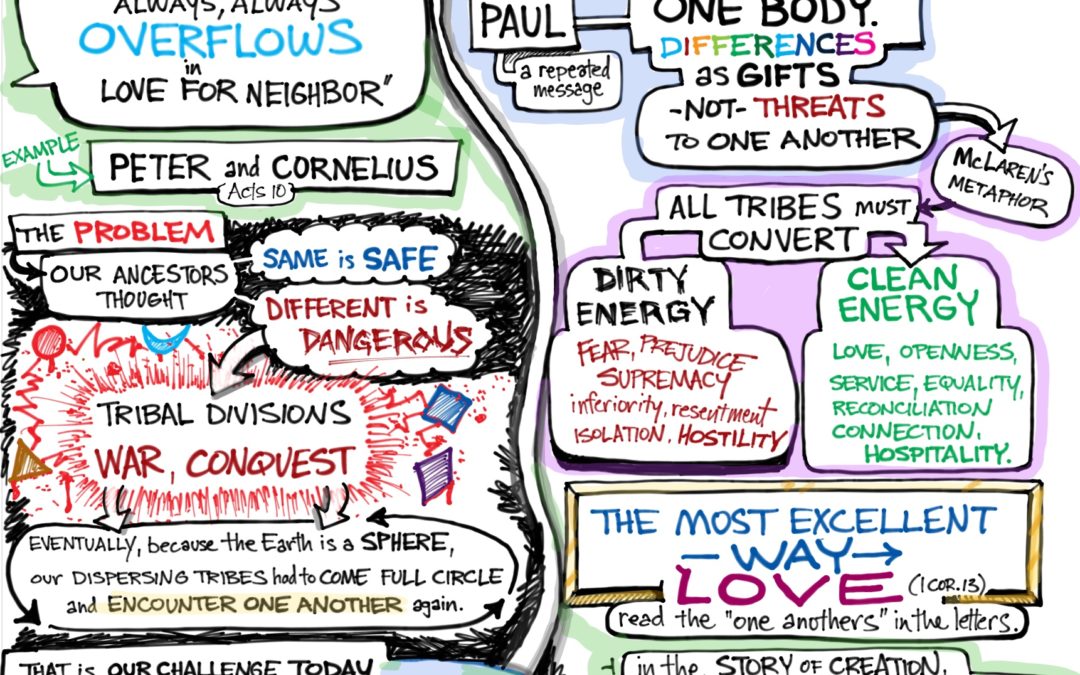 ALWAYS, ALWAYS
OVERFLOWS
in
LOVE FOR NEIGHBOR"
EXAMPLE
PETER and CORNELIUS
Acts 10
THE PROBLEM
OUR ANCESTORS
THOUGHT
SAME is SAFE
DIFFERENT is
DANGEROUS
TRIBAL DIVISIONS
WAR, CONQUEST
EVENTUALLY, because the Earth is a SPHERE,
our DISPERSING TRIBES had to COME FULL CIRCLE
and ENCOUNTER ONE ANOTHER again.
THAT is OUR CHALLENGE TODAY
PAUL
a repeated
message
ONE BODY.
DIFFERENCES
as GIFTS
-NOT- THREATS
TO ONE ANOTHER
McLAREN'S
METAPHOR
ALL TRIBES MUST
CONVERT
DIRTY
ENERGY
FEAR, PREJUDICE
SUPREMACY
inferiority, resentment
ISOLATION, HOSTILITY
CLEAN
ENERGY
LOVE, OPENNESS,
SERVICE, EQUALITY,
RECONCILIATION
CONNECTION,
HOSPITALITY.
THE MOST EXCELLENT
WAY
LOVE (1 COR. 13)
read the "one anothers" in the letters.
in the STORY OF CREATION,